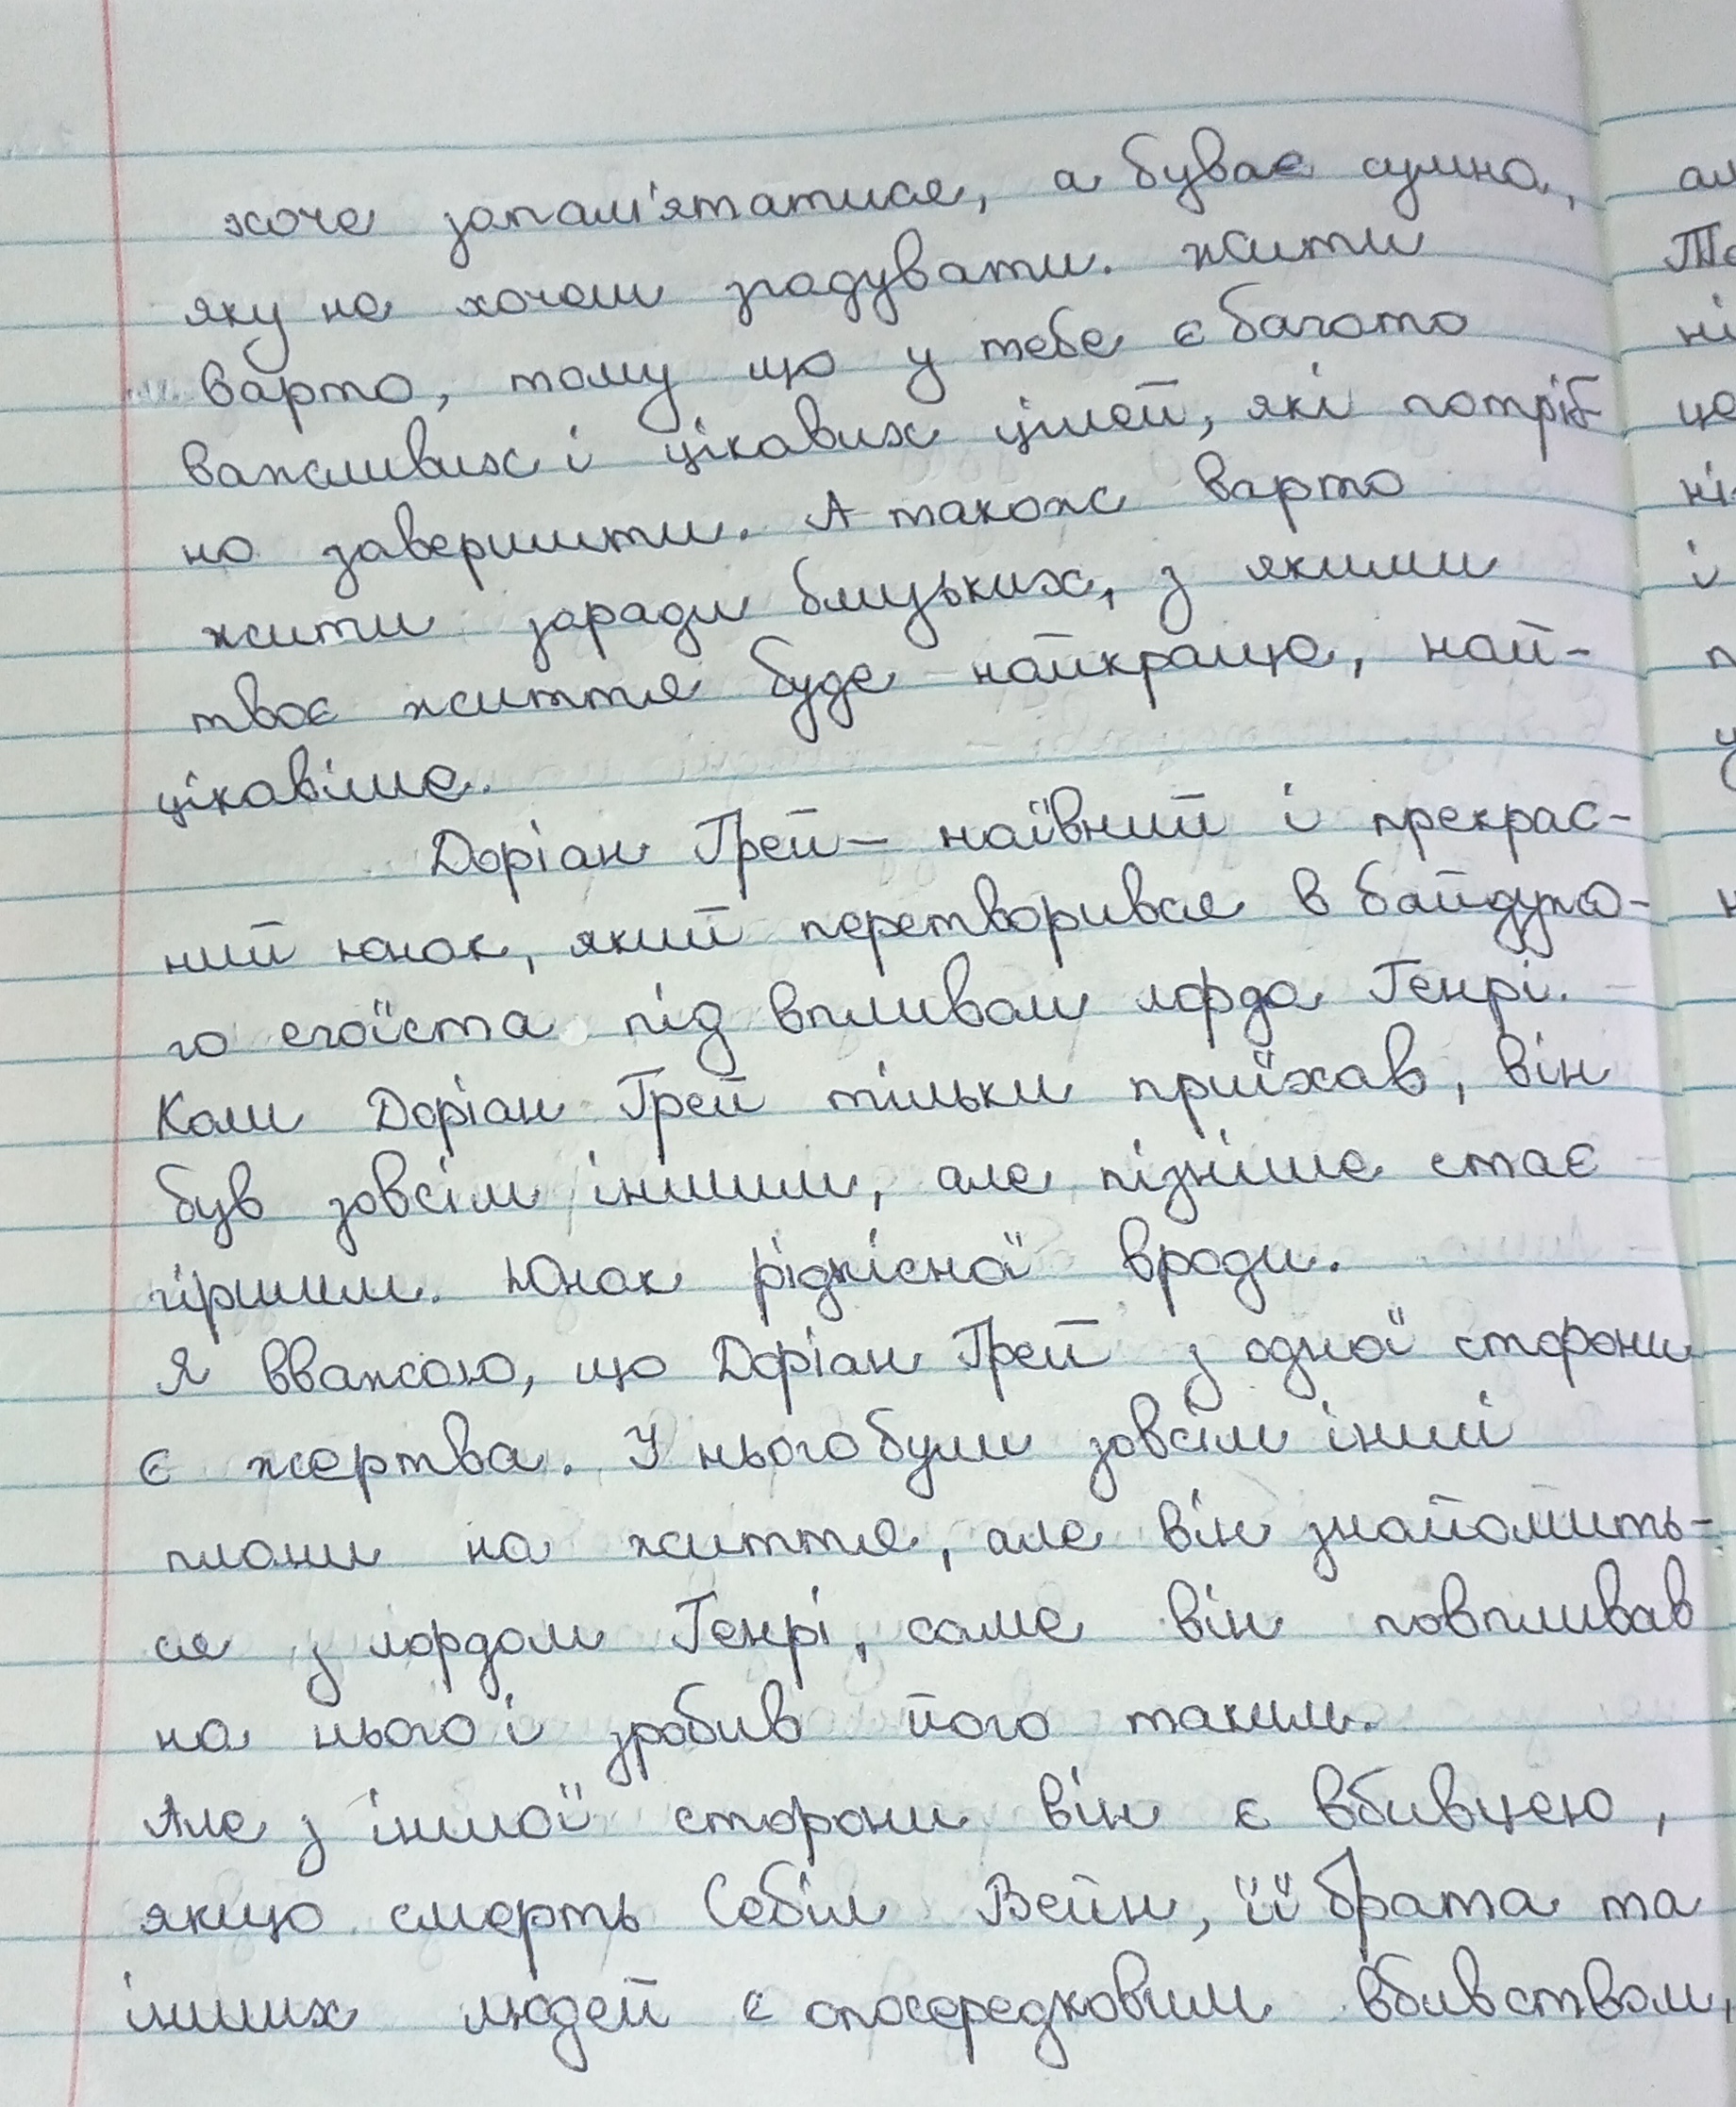 хоче запам'ятатися, а буває сумна,
яку не хочеш згадувати. Жити
варто, тому що у тебе є багато
важливих і цікавих цілей, які потріб-
но завершити. А також варто
жити заради близьких, з якими
твоє життя буде найкраще, най-
цікавіше.
Доріан Ґрей – наївний і прекрас-
ний юнак, який перетворився в байдужо-
го егоїста під впливом лорда Генрі.
Коли Доріан Ґрей тільки приїхав, він
був зовсім іншим, але пізніше стає
гіршим. Юнак рідкісної вроди.
Я вважаю, що Доріан Ґрей з одної сторони
є жертва. У нього були зовсім інші
плани на життя, але він знайомить-
ся з лордом Генрі, саме він повпливав
на нього і зробив його таким.
Але з іншої сторони він є вбивцею,
якщо смерть Себіл Вейн, її брата та
інших людей є опосередковим вбивством,